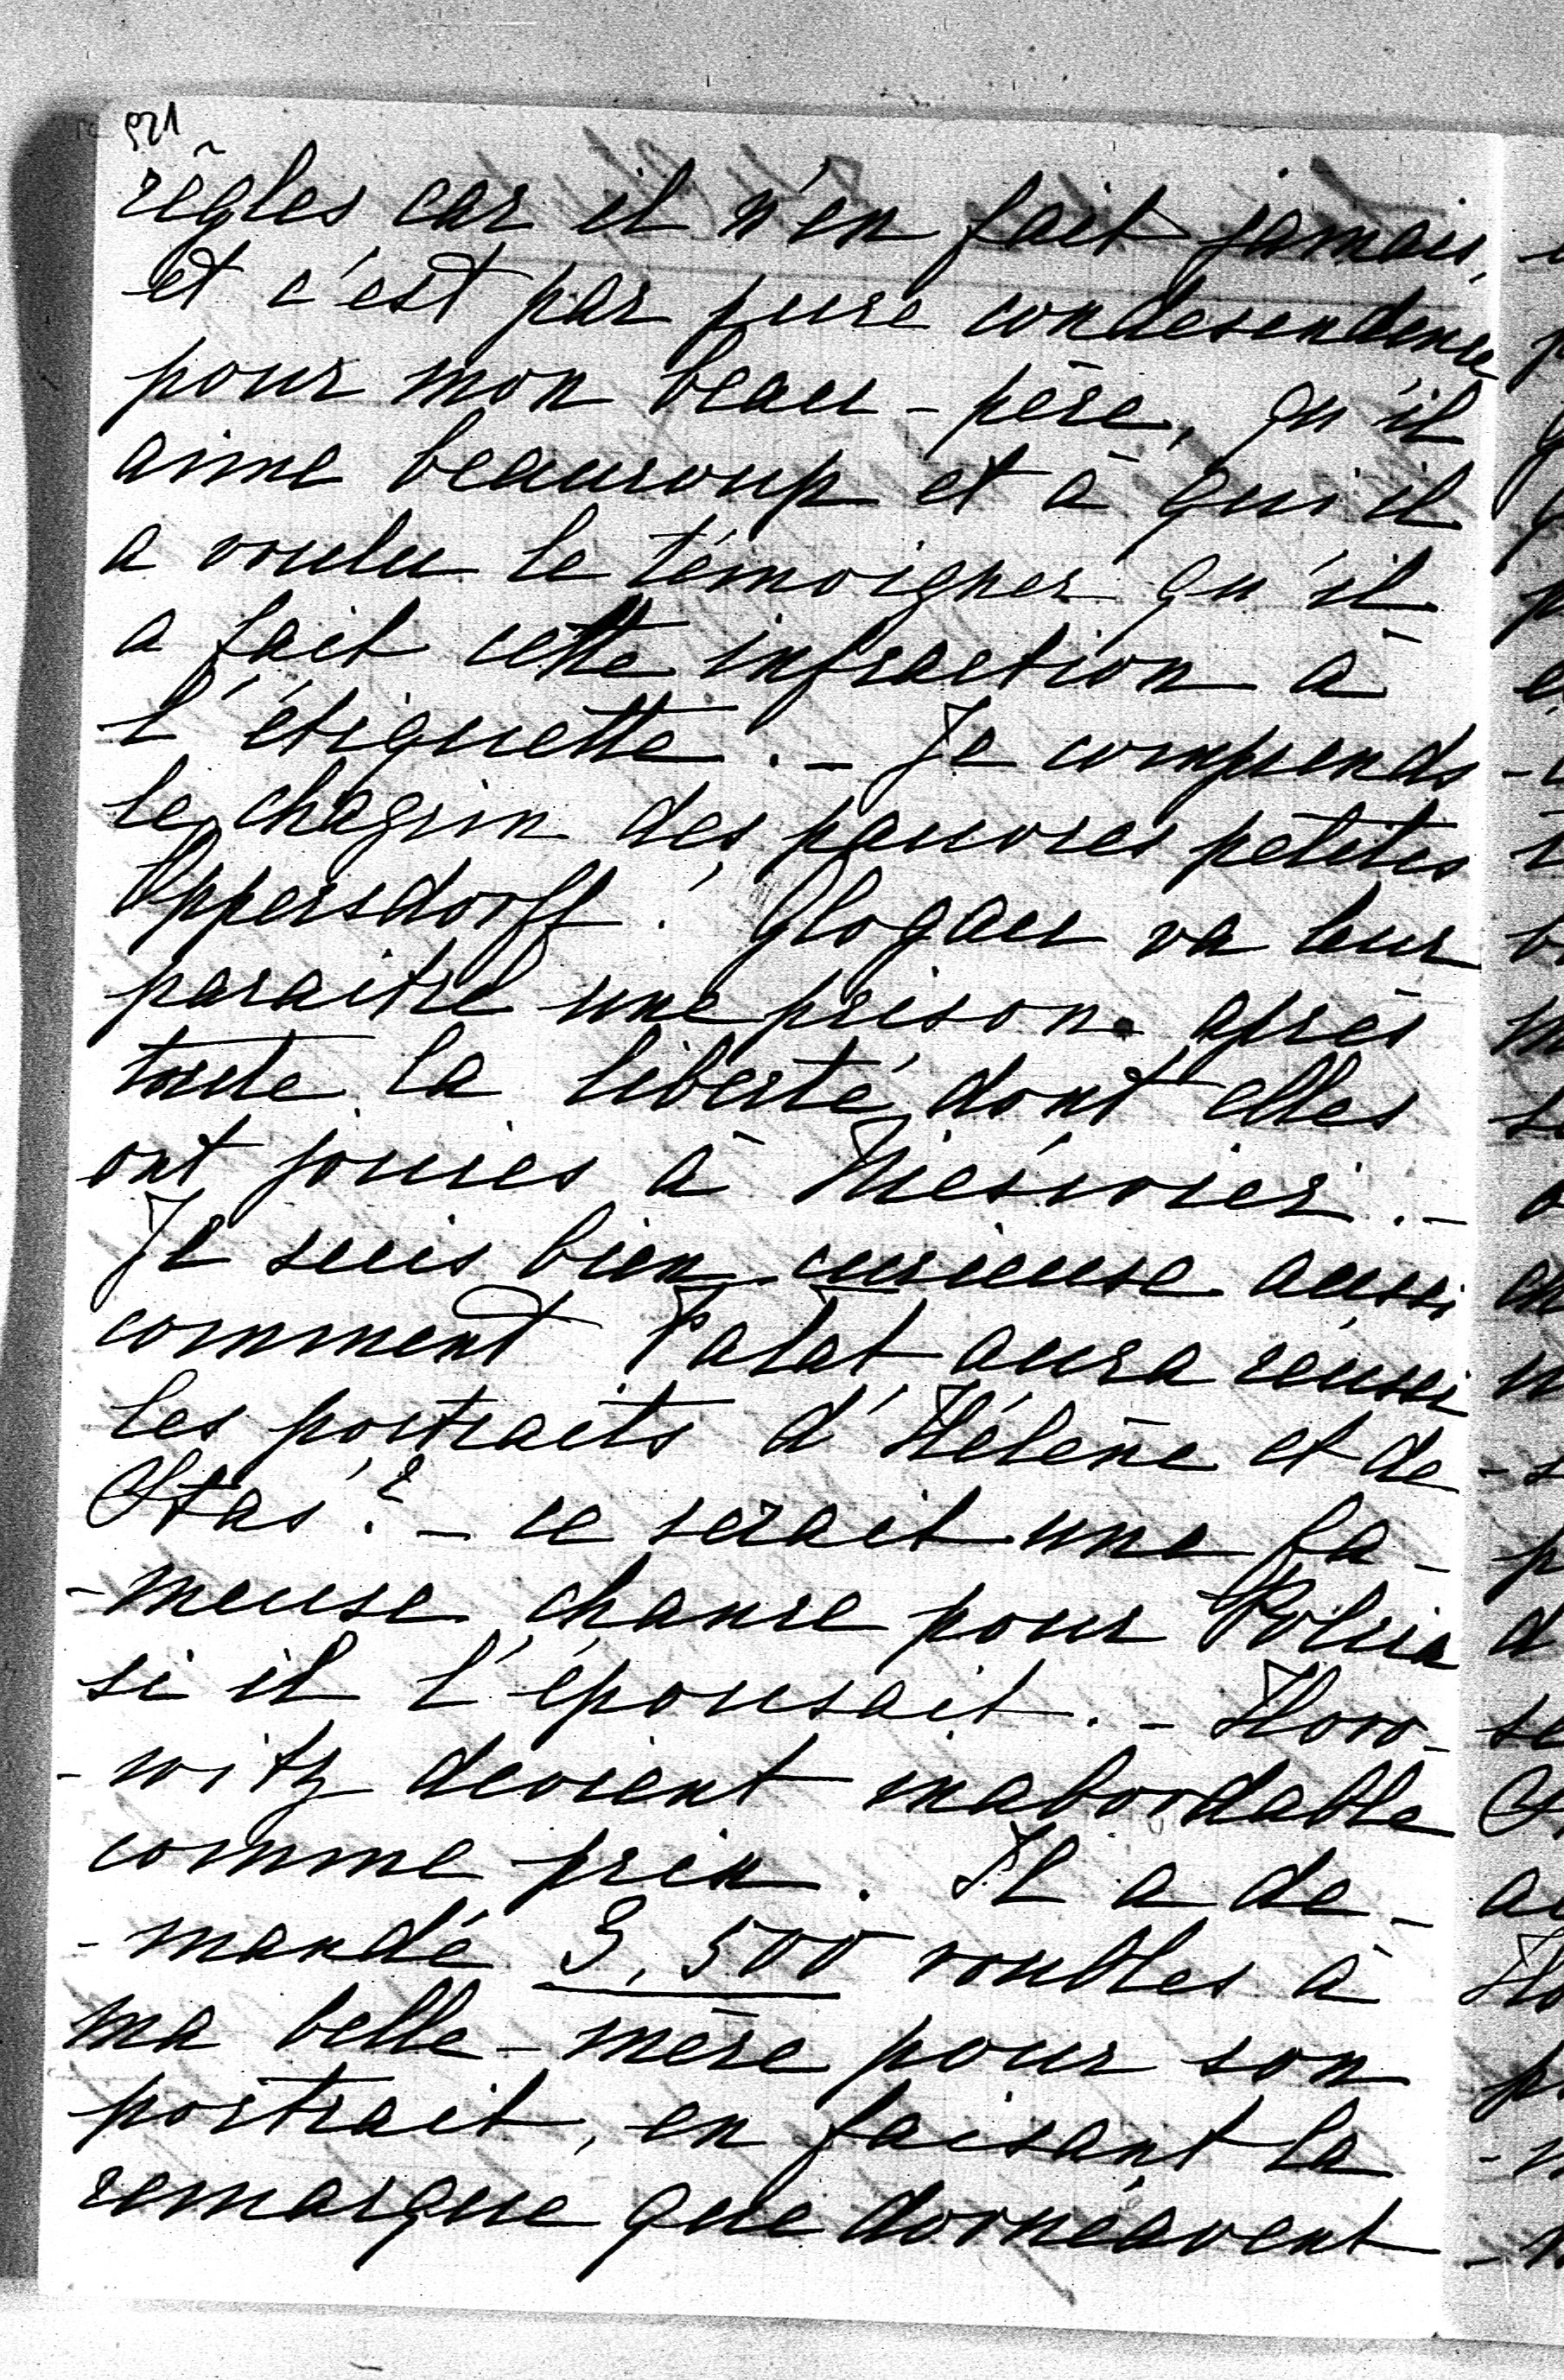 921
règles car il n'en fait jamais,
et c'est par pure condesendence
pour mon beau-père, qu'il
aime beaucoup et à qui il
a voulu le témoigner qu'il
a fait cette infraction à
l'étiquette. – Je comprends
le chagrin des pauvres petites
Oppersdorff! Glogau va leur
paraitre une prison après
toute la liberté dont elles
ont jouies à Nieśwież. –
Je suis bien curieuse aussi
comment Patat aura réussi
les portraits d'Hélène et de
Staś? – ce serait une fa-
-meuse chance pour
si il l'épousait. – Horo-
-witz devient inabordable
comme prix. Il a de-
-mandé 3,500 roubles à
ma belle-mère pour son
portrait, en faisant la
remarque que dornéavent